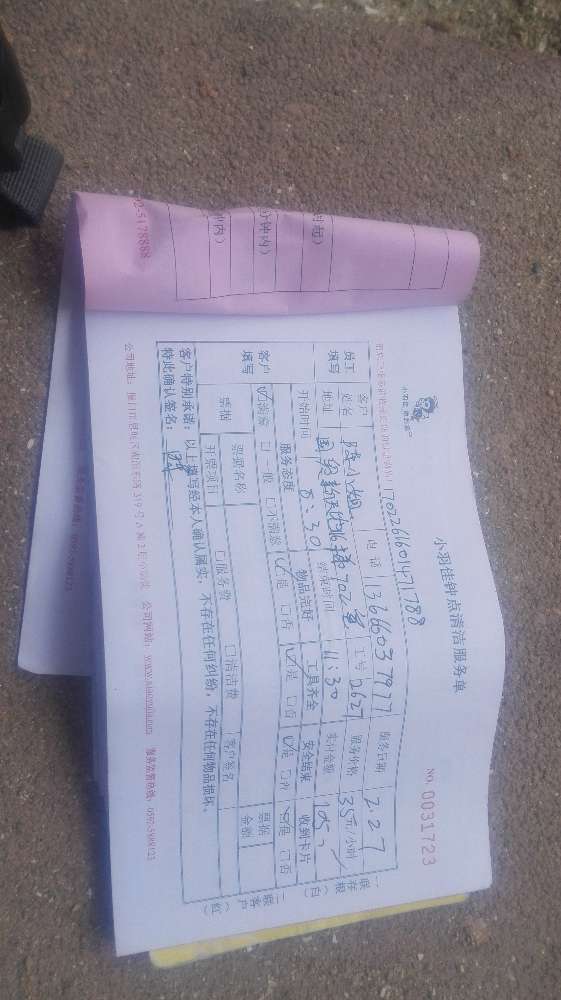 小羽佳钟点清洁服务单
NO. 0031723
客户姓名 陈小姐 电话 13666037977 服务日期 2.27
地址 702室 工号 2627 服务价格 35元/小时
开始时间 8:30 结束时间 11:30 实计金额 105
员工填写
服务态度 物品完好 工具齐全 安全结束 收到卡片
客户填写
☑满意 □一般 □不满意 ☑是 □否 ☑是 □否 ☑是 □否 ☑是 □否
票据 票据名称 客户签名 票据金额
开票项目 □服务费 □清洁费
客户特别承诺:以上填写经本人确认属实,不存在任何纠纷,不存在任何物品损坏。
特此确认签名:
一联存根(白) 二联客户(红)
公司地址: 公司网站: 服务监督热线:
2-5178888